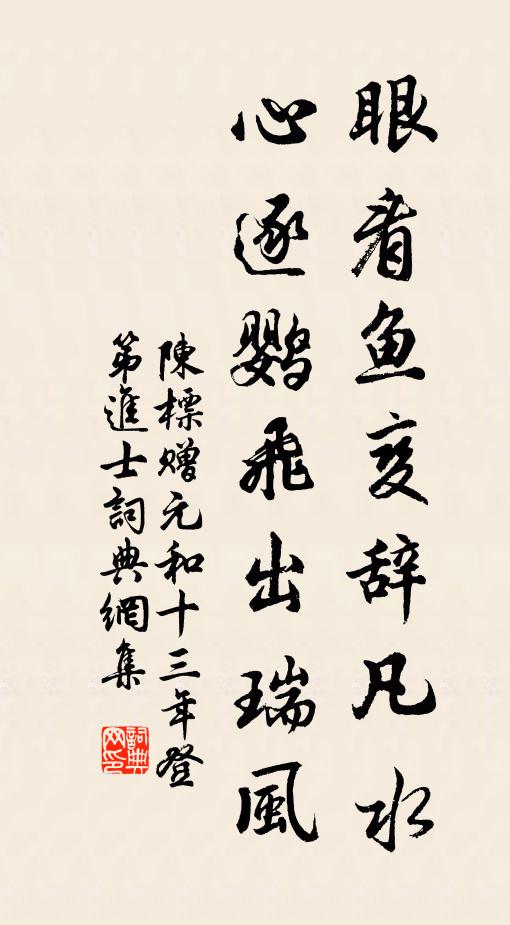 眼看鱼变辞凡水
心逐鹦飛出瑞風
陳標赠元和十三年登
第進士詞典網集
詞典网印